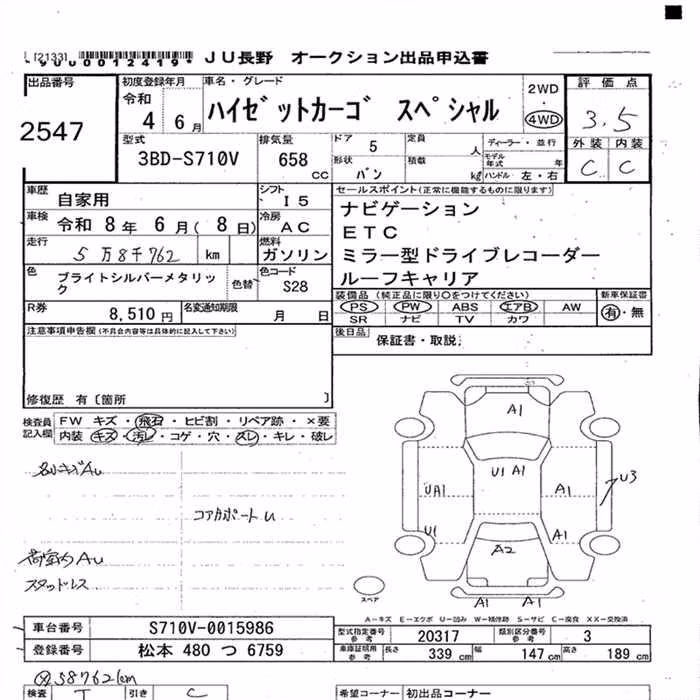 [2133] *9000012419* JU長野 オークション出品申込書
出品番号 2547
初度登録年月 令和 4 6月
車名・グレード ハイゼットカーゴ スペシャル
2WD ・ 4WD
評価点 3.5
外装 内装
C C
型式 3BD-S710V
排気量 658 CC
ドア 5 定員 人
形状 バン 積載 kg
ディーラー・並行
モデル年式 年
ハンドル 左・右
車歴 自家用
シフト I5
車検 令和 8年 6月( 8日)
冷房 AC
走行 5万8千762 km
燃料 ガソリン
色 ブライトシルバーメタリック
色替
色コード S28
R券 8,510円
名変通知期限 月 日
セールスポイント(正常に機能するものに限ります)
ナビゲーション
ETC
ミラー型ドライブレコーダー
ルーフキャリア
装備品(純正品に限り〇をつけてください)
新車保証書
PS PW ABS エアB AW
有・無
SR ナビ TV カワ
後日品 保証書・取説
注意事項申告欄(不具合内容等は具体的に記入して下さい)
修復歴 有〔箇所 〕
検査員記入欄
FW キズ・飛石・ヒビ割・リペア跡・×要
内装 キズ・汚レ・コゲ・穴・スレ・キレ・破レ
コアサポートU
荷室内AU
スタッドレス
A1
U1 A1
UA1
A1
U3
U1
A1
A2
A1 A1
スペア
A-キズ E-エクボ U-凹み W-補修跡 S-サビ C-腐食 XX-交換済
車台番号 S710V-0015986
登録番号 松本 480 つ 6759
型式指定番号 参考 20317
類別区分番号 参考 3
車庫証明用 参考 長さ 339 cm 幅 147 cm 高さ 189 cm
58762km
検査 T 引き C
希望コーナー 初出品コーナー